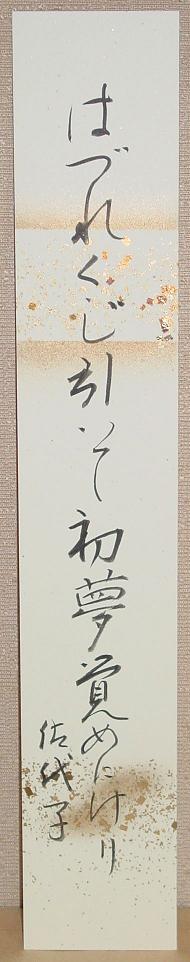 はづれくじ引いて初夢覚めにけり
佐代子